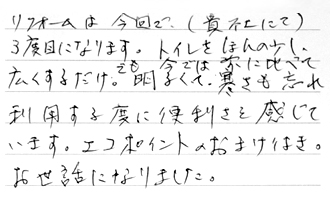 リフォームは今回で、(貴社にて)
3度目になります。トイレをほんの少し、
広くするだけ。でも今では家に比べて
明るくて、寒さも忘れ
利用する度に便利さを感じて
います。エコポイントのおまけ付き。
お世話になりました。